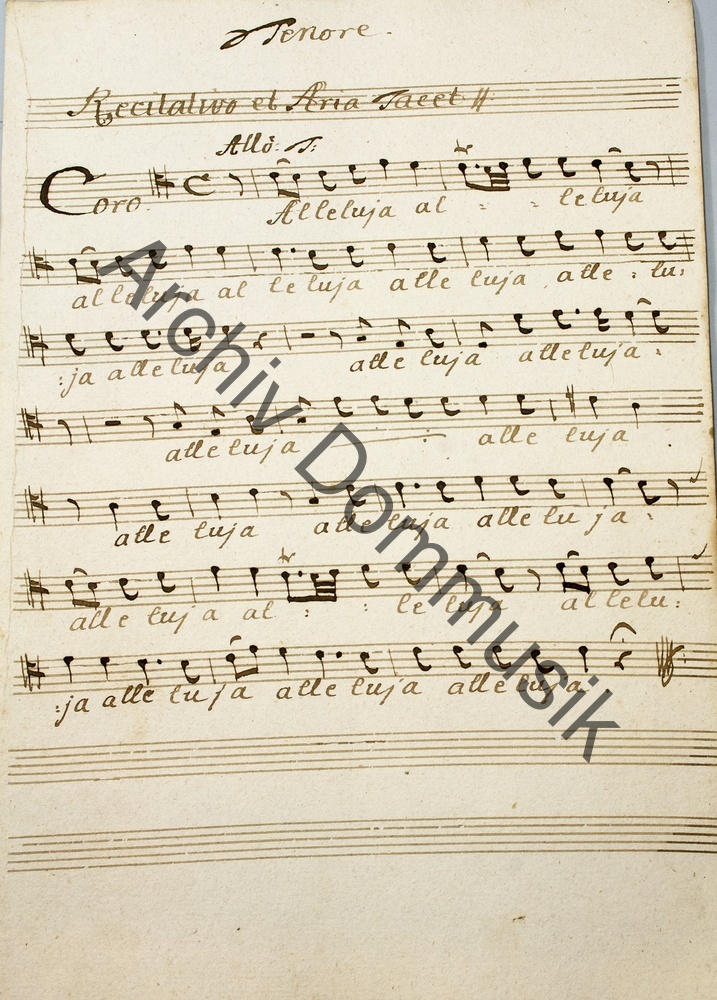 Tenore.
Recitativo et Aria Tacet
Allo: T:
Coro.
Alleluja al - - leluja
alleluja al leluja alle luja alle : lu:
:ja alleluja alle luja alleluja :
alleluja alle luja
alle luja alle luja alle lu ja :
alle luja al : : le luja allelu:
:ja alle luja alle luja alleluja.
Archiv Dommusik